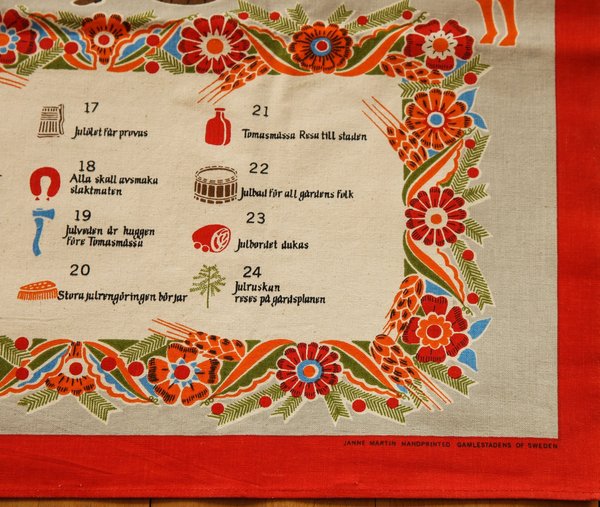 17
Julölet får provas
18
Alla skall avsmaka
slaktmaten
19
Julveden är huggen
före Tomasmässa
20
Stora julrengöringen börjar
21
Tomasmässa Resa till staden
22
Julbad för all gårdens folk
23
Julbordet dukas
24
Julruskan
reses på gårdsplanen
JANNE MARTIN HANDPRINTED GAMLESTADENS OF SWEDEN